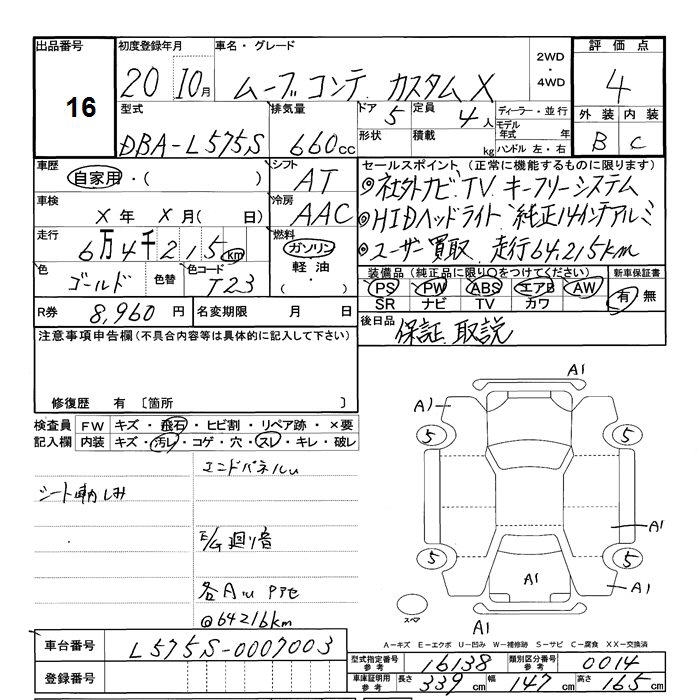 出品番号 初度登録年月 車名・グレード 2WD・4WD 評価点
16 20 10月 ムーブ コンテ カスタム X 4
型式 排気量 ドア 5 定員 4人 ディーラー・並行 外装 内装
DBA-L575S 660cc 形状 積載 kg モデル年式 年 B C
ハンドル 左・右
車歴 自家用・( ) シフト AT セールスポイント (正常に機能するものに限ります)
◎社外ナビ.TV. キーフリーシステム
車検 X年 X月( 日) 冷房 AAC ◎HIDヘッドライト. 純正14インチアルミ
走行 6万4千215km 燃料 ガソリン ◎ユーザー買取. 走行64,215km
軽油
・( )
色 ゴールド 色替 色コード T23 装備品 (純正品に限り○をつけてください) 新車保証書
PS PW ABS エアB AW 有 無
SR ナビ TV カワ
R券 8,960 円 名変期限 月 日 後日品 保証.取説
注意事項申告欄 (不具合内容等は具体的に記入して下さい)
修復歴 有 〔箇所 〕
検査員 FW キズ・飛石・ヒビ割・リペア跡・×要
記入欄 内装 キズ・汚レ・コゲ・穴・スレ・キレ・破レ
エンドパネルu
シート
E/G 廻り音
各Au
@64216km
A1
A1
5 5
A1
5 5
A1 A1
スペア A1
A-キズ E-エクボ U-凹み W-補修跡 S-サビ C-腐食 XX-交換済
車台番号 L575S-0007003
登録番号
型式指定番号 参考 16138 類別区分番号 参考 0014
車庫証明用 参考 長さ 339cm 幅 147cm 高さ 165cm